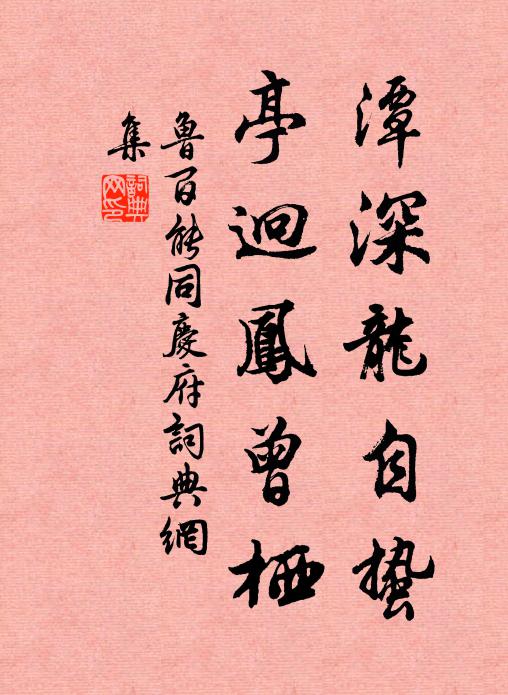 潭深龍自蟄
亭迴鳳曾栖
魯百能同慶府詞典網
集
詞典网印